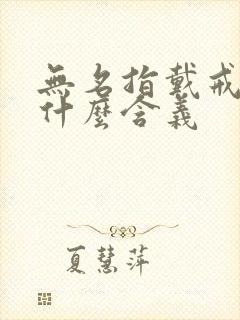 無名指戴戒
什麼含義
夏慧萍